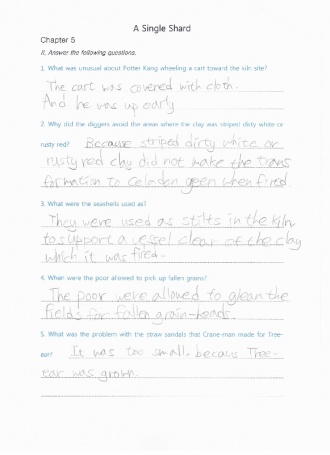 A Single Shard
Chapter 5
II. Answer the following questions.
1. What was unusual about Potter Kang wheeling a cart toward the kiln site?
The cart was covered with cloth.
And he was up early
2. Why did the diggers avoid the areas where the clay was striped dirty white or
rusty red? Because striped dirty white or
rusty red clay did not make the trans
formation to Celadon geen when fired.
3. What were the seashells used as?
They were used as stilts in the kiln
to support a vessel clear of the clay
which it was fired.
4. When were the poor allowed to pick up fallen grains?
The poor were allowed to glean the
fields for fallen grain-heads.
5. What was the problem with the straw sandals that Crane-man made for Tree-
ear? It was too small, becaus Tree-
ear was grown.